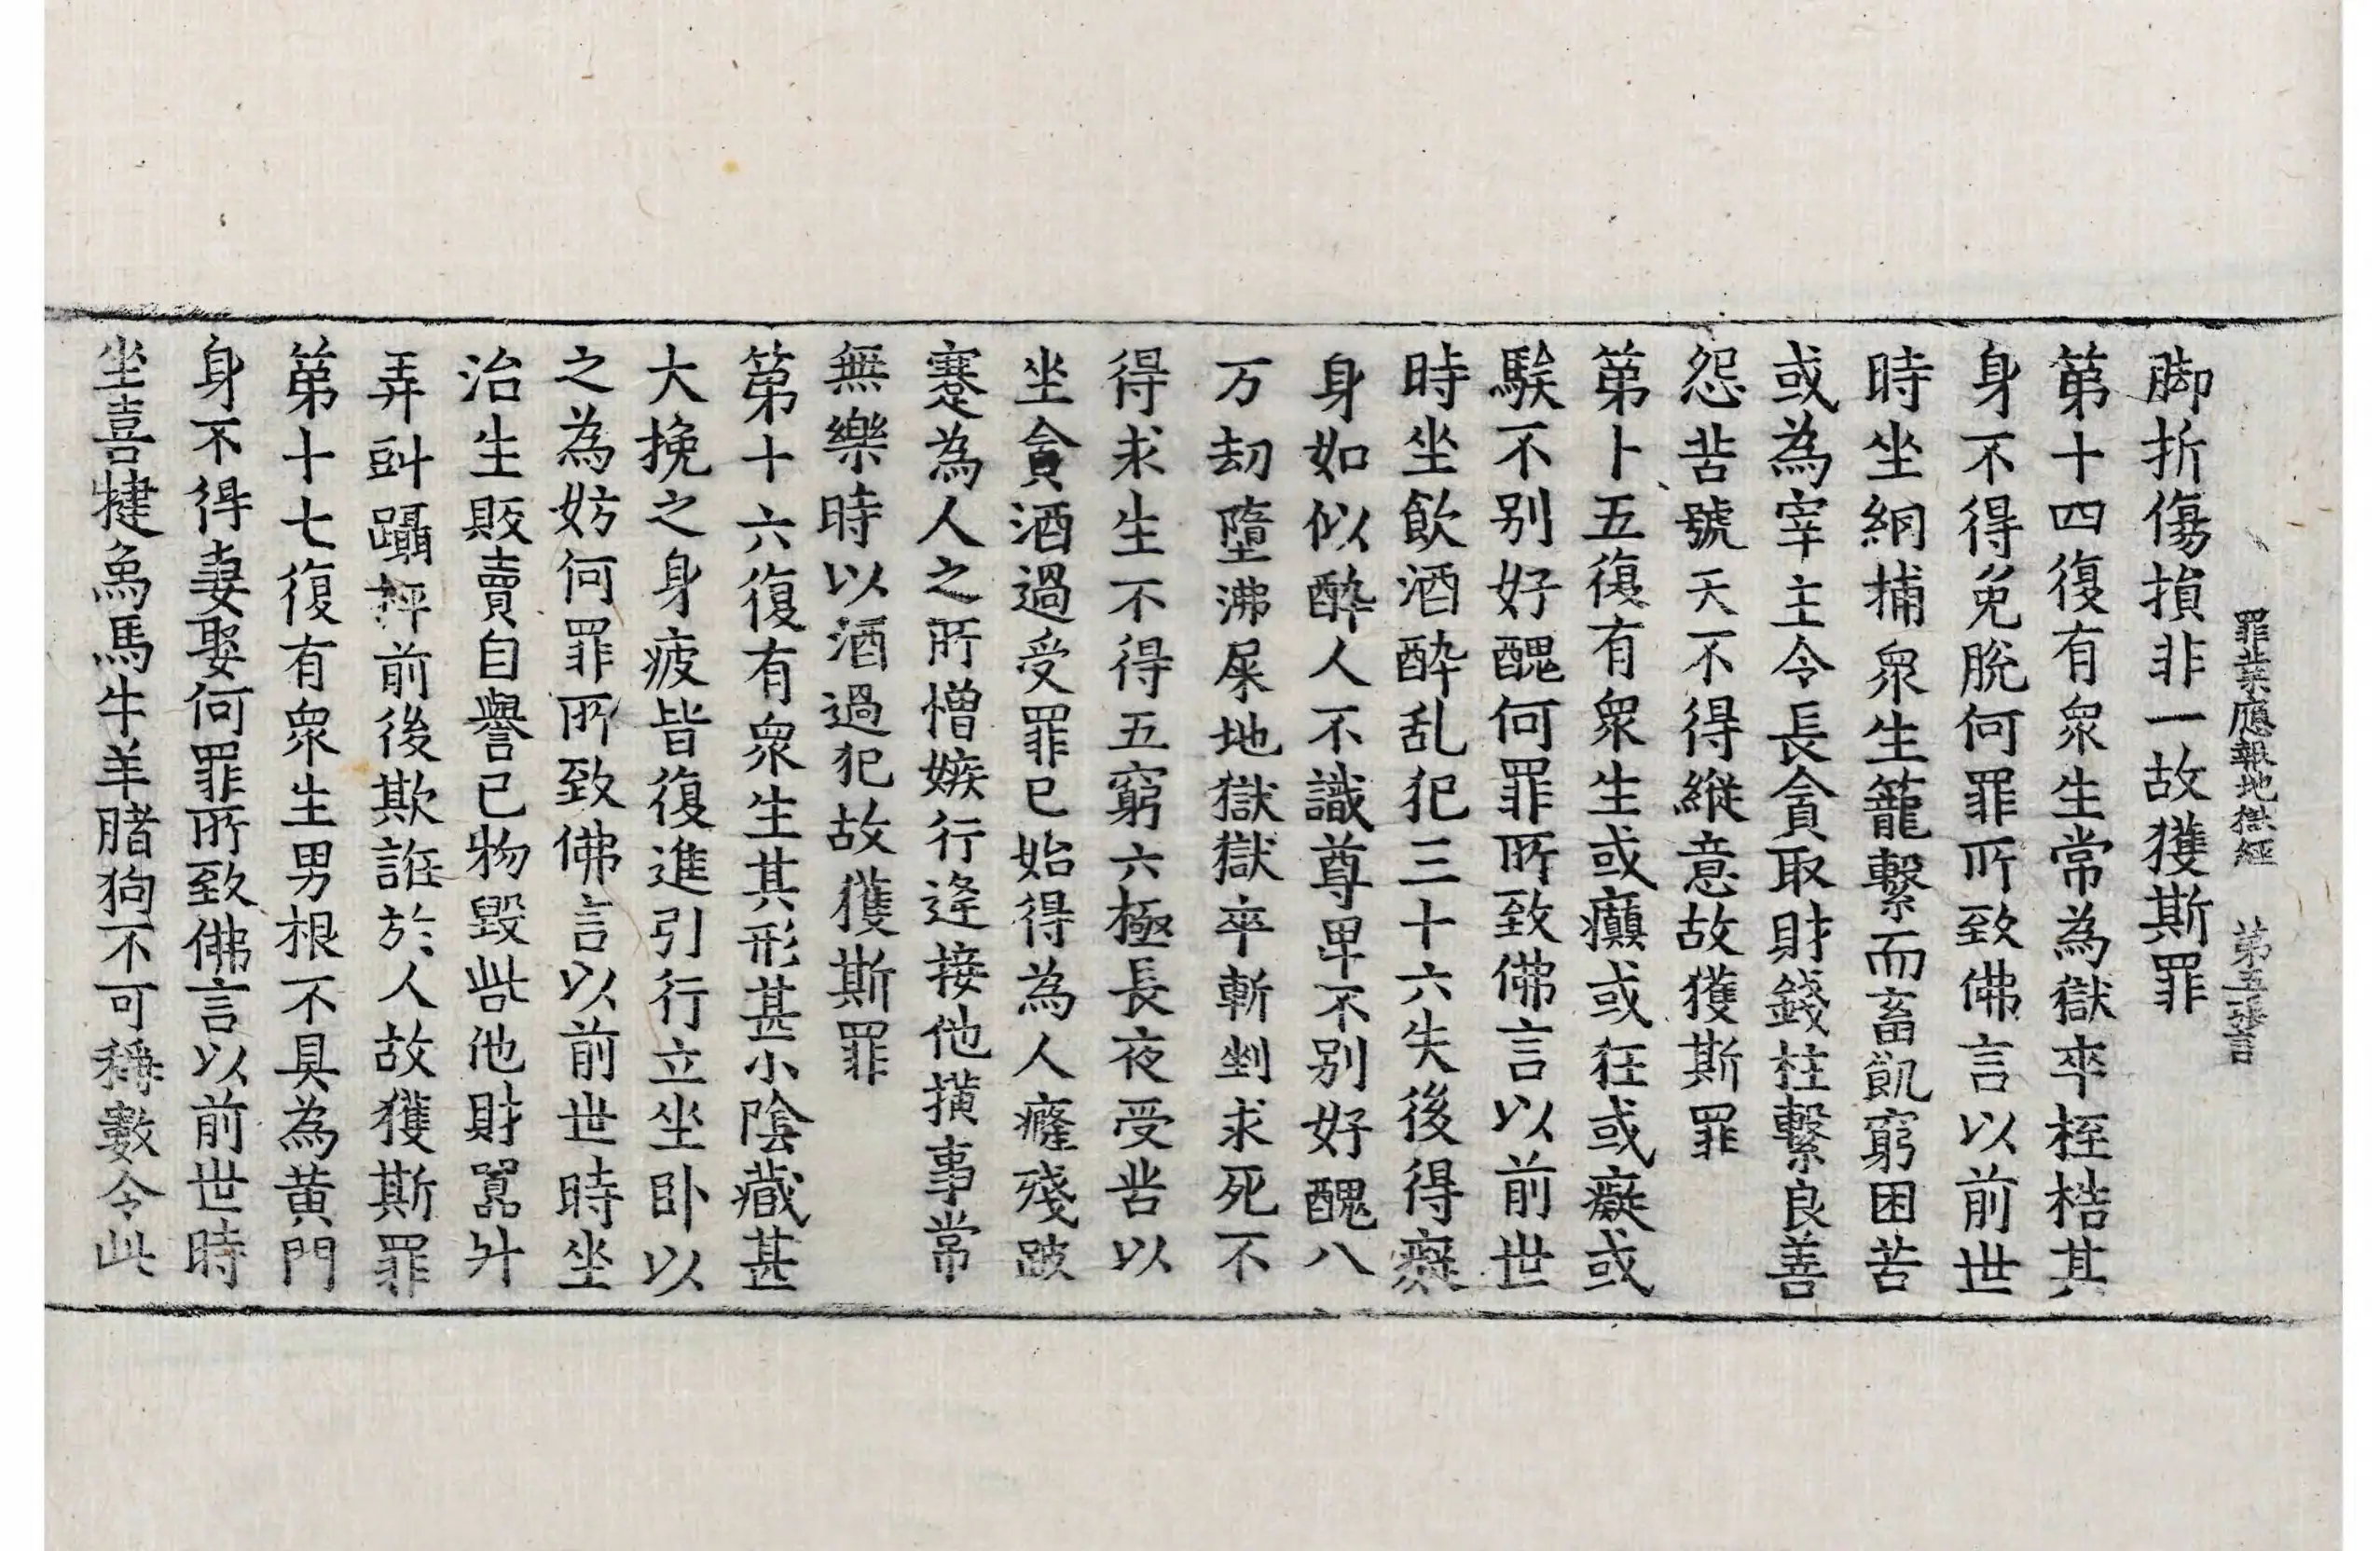 罪業應報地獄經 第五張 言
脚折傷損非一故獲斯罪
第十四復有衆生常為獄卒桎梏其
身不得免脫何罪所致佛言以前世
時坐網捕衆生籠繫而畜飢窮困苦
或為宰主令長貪取財錢枉繫良善
怨苦號天不得縱意故獲斯罪
第十五復有衆生或癲或狂或癡或
騃不別好醜何罪所致佛言以前世
時坐飲酒醉乱犯三十六失後得癡
身如似醉人不識尊卑不別好醜八
万劫墮沸屎地獄獄卒斬剉求死不
得求生不得五窮六極長夜受苦以
坐貪酒過受罪已始得為人癃殘跛
蹇為人之所憎嫉行逄接他撗事常
無樂時以酒過犯故獲斯罪
第十六復有衆生其形甚小陰藏甚
大挽之身疲皆復進引行立坐卧以
之為妨何罪所致佛言以前世時坐
治生販賣自譽己物毀呰他財嚚升
弄㪷躡秤前後欺誑於人故獲斯罪
第十七復有衆生男根不具為黄門
身不得妻娶何罪所致佛言以前世時
坐喜揵象馬牛羊猪狗不可稱數令此